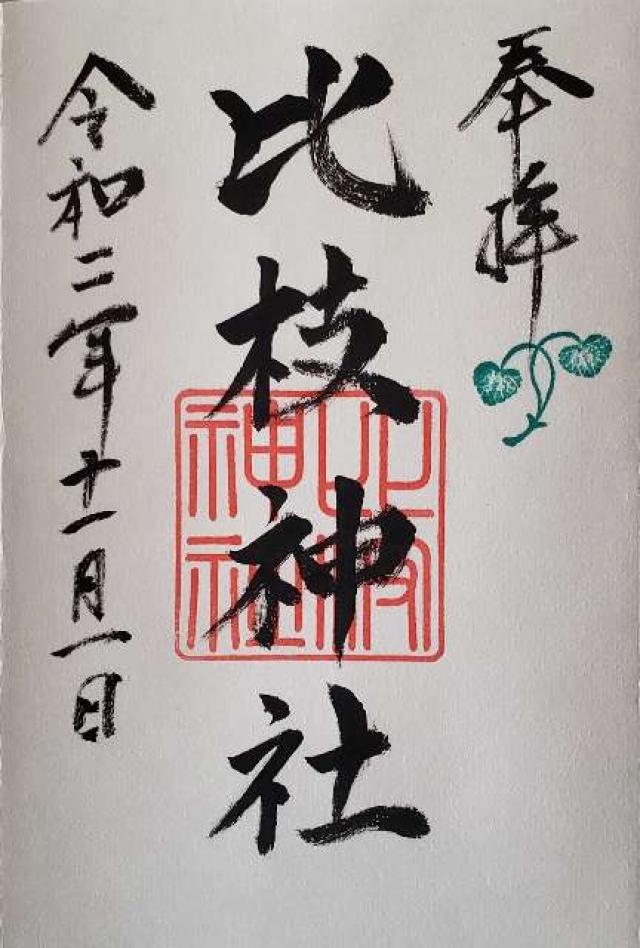 奉拝
比枝神社
比枝神社
令和二年十一月一日